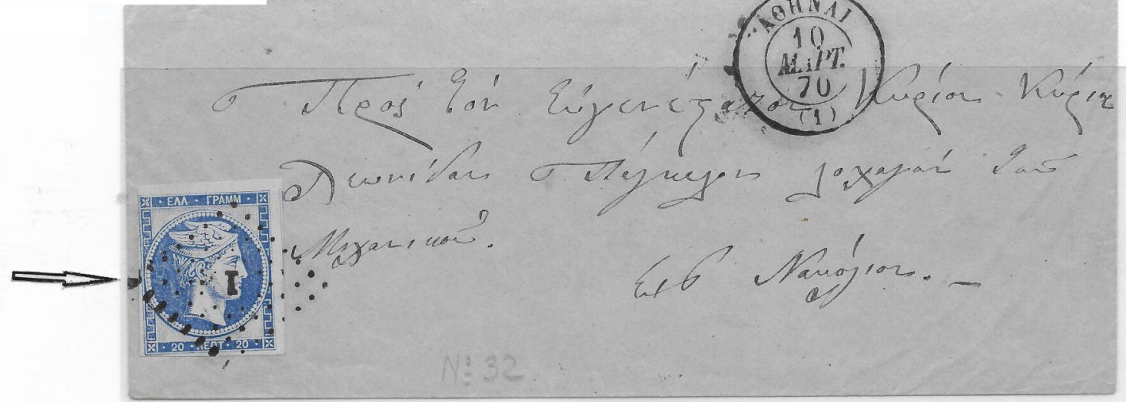 ΑΘΗΝΑΙ
10
ΜΑΡΤ.
70
(1)
Προς τον Ευγενέστατον Κύριον Κύριον
Λεωνίδαν λοχαγόν του
Μηχανικού.
Εις Ναύπλιον.
ΕΛΛ ΓΡΑΜΜ
1
20 ΛΕΠΤ 20
Nº 32